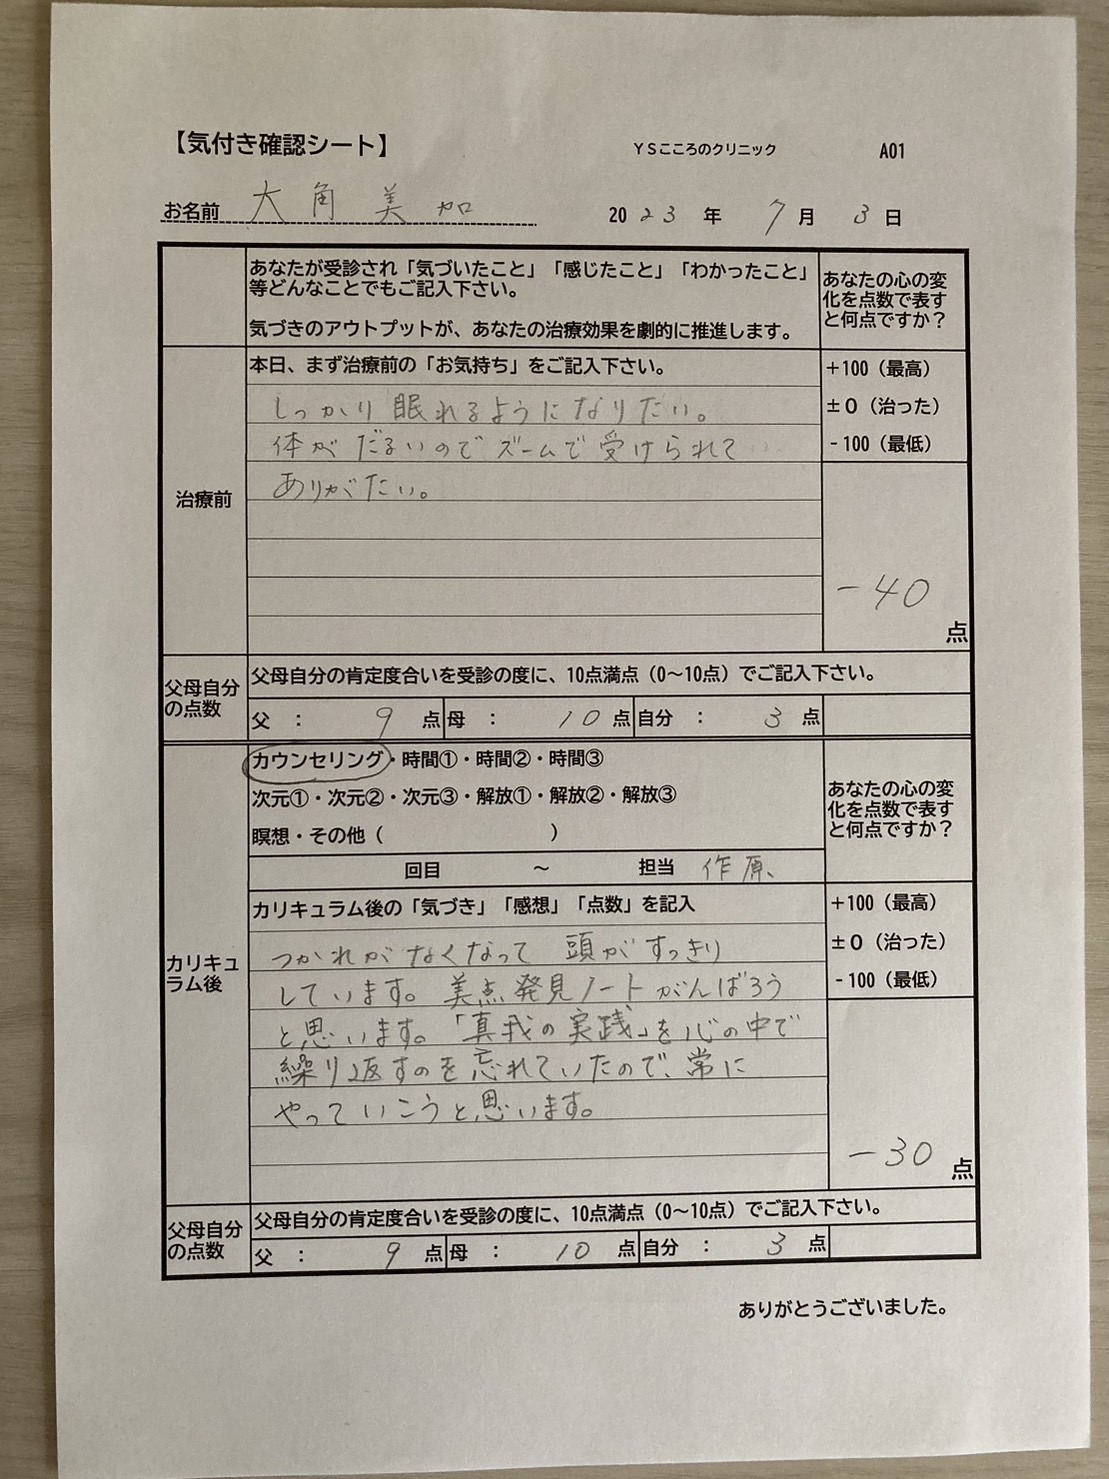 【気付き確認シート】 YSこころのクリニック A01
お名前 大角 美加 2023年 7月 3日
あなたが受診され「気づいたこと」「感じたこと」「わかったこと」
等どんなことでもご記入下さい。
気づきのアウトプットが、あなたの治療効果を劇的に推進します。
あなたの心の変
化を点数で表す
と何点ですか？
治療前
本日、まず治療前の「お気持ち」をご記入下さい。
しっかり眠れるようになりたい。
体がだるいのでズームで受けられて
ありがたい。
+100（最高）
±0（治った）
-100（最低）
-40点
父母自分
の点数
父母自分の肯定度合いを受診の度に、10点満点（0～10点）でご記入下さい。
父 ： 9 点 母 ： 10 点 自分 ： 3 点
カリキュ
ラム後
カウンセリング・時間①・時間②・時間③
次元①・次元②・次元③・解放①・解放②・解放③
瞑想・その他（ ）
回目 ～ 担当 作原
あなたの心の変
化を点数で表す
と何点ですか？
カリキュラム後の「気づき」「感想」「点数」を記入
つかれがなくなって 頭がすっきり
しています。美点発見ノートがんばろう
と思います。「真我の実践」を心の中で
繰り返すのを忘れていたので、常に
やっていこうと思います。
+100（最高）
±0（治った）
-100（最低）
-30点
父母自分
の点数
父母自分の肯定度合いを受診の度に、10点満点（0～10点）でご記入下さい。
父 ： 9 点 母 ： 10 点 自分 ： 3 点
ありがとうございました。